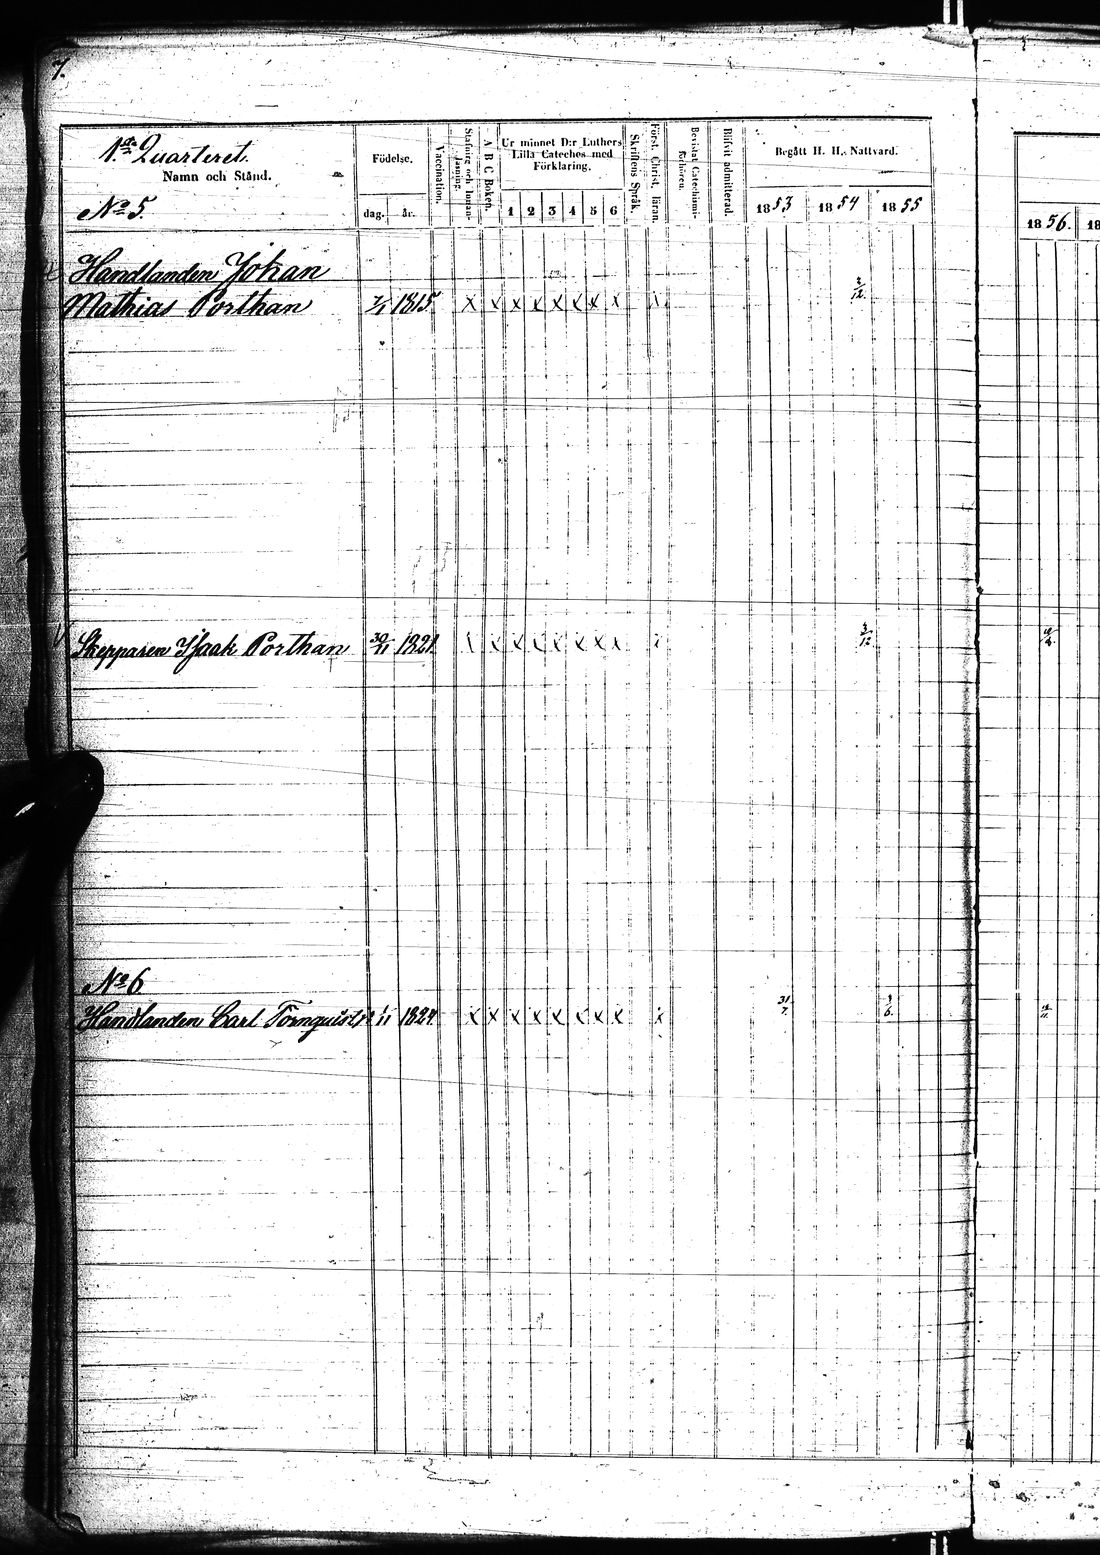 7.
1:a Quarteret.
Namn och Stånd.
No 5.
Födelse.
dag. år.
Vaccination.
Stafning och Innan-
läsning.
A B C Boken.
Ur minnet D:r Luthers
Lilla Cateches med
Förklaring.
1 2 3 4 5 6
Skriftens Språk.
Först. Christ. läran.
Bevistat Catechismi-
förhören.
Blifvit admitterad.
Begått H. H. Nattvard.
1853 1854 1855
1856. 18
Handlanden Johan
Mathias Porthan 1815. x x x x x x x x x 2/12
Skepparen Isaak Porthan 30/11 1821 x x x x x x x x 3/12
No 6
Handlanden Carl Törnquist 1824 x x x x x x x x x 31/7.